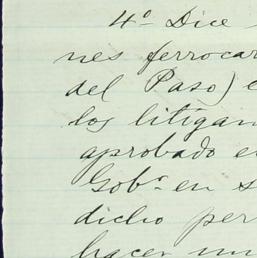 4º Dice
nes ferrocar
del Paso) e
los litigan
aprobado e
Gobº en s
dicho per
hacer un